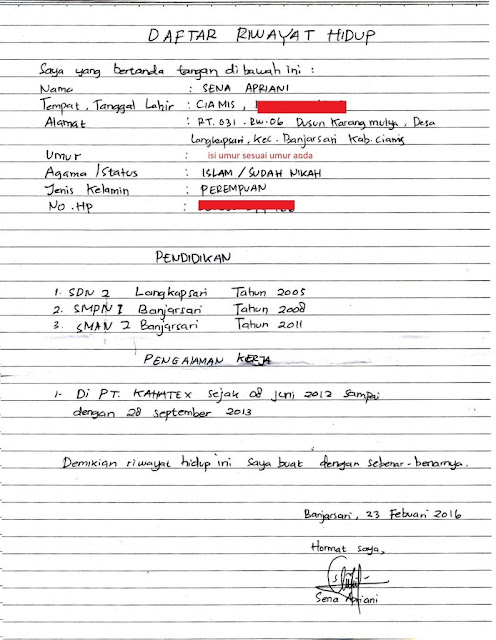 DAFTAR RIWAYAT HIDUP
Saya yang bertanda tangan di bawah ini :
Nama : SENA APRIANI
Tempat, Tanggal Lahir : CIAMIS,
Alamat : RT.031 - RW.06 Dusun Karang mulya, Desa
Langkapsari, Kec. Banjarsari Kab. Ciamis
Umur : isi umur sesuai umur anda
Agama / Status : ISLAM / SUDAH NIKAH
Jenis Kelamin : PEREMPUAN
No. HP :
PENDIDIKAN
1. SDN 2 Langkapsari Tahun 2005
2. SMPN 1 Banjarsari Tahun 2008
3. SMAN 2 Banjarsari Tahun 2011
PENGALAMAN KERJA
1- Di PT. KAHATEX Sejak 08 Juni 2012 Sampai
dengan 28 September 2013
Demikian riwayat hidup ini Saya buat dengan sebenar-benarnya.
Banjarsari, 23 Febuari 2016
Hormat Saya,
Sena Apriani